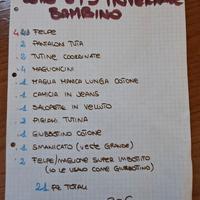 BAMBINO
FELPE
2 PANTALONI TUTA
2 TUTINE COORDINATE
4 MAGLIONCINI
1 MAGLIA MANICA LUNGA COTONE
1 CAMICIA IN JEANS
1 SALOPETTE IN VELLUTO
2 PIGIAMI TUTINA
1 GIUBBOTTINO COTONE
1 SMANICATO (VESTE GRANDE)
2 FELPE/MAGLIONE SUPER IMBOTTITO
(IO LE USAVO COME GIUBBOTTINO)
21 PZ TOTALI